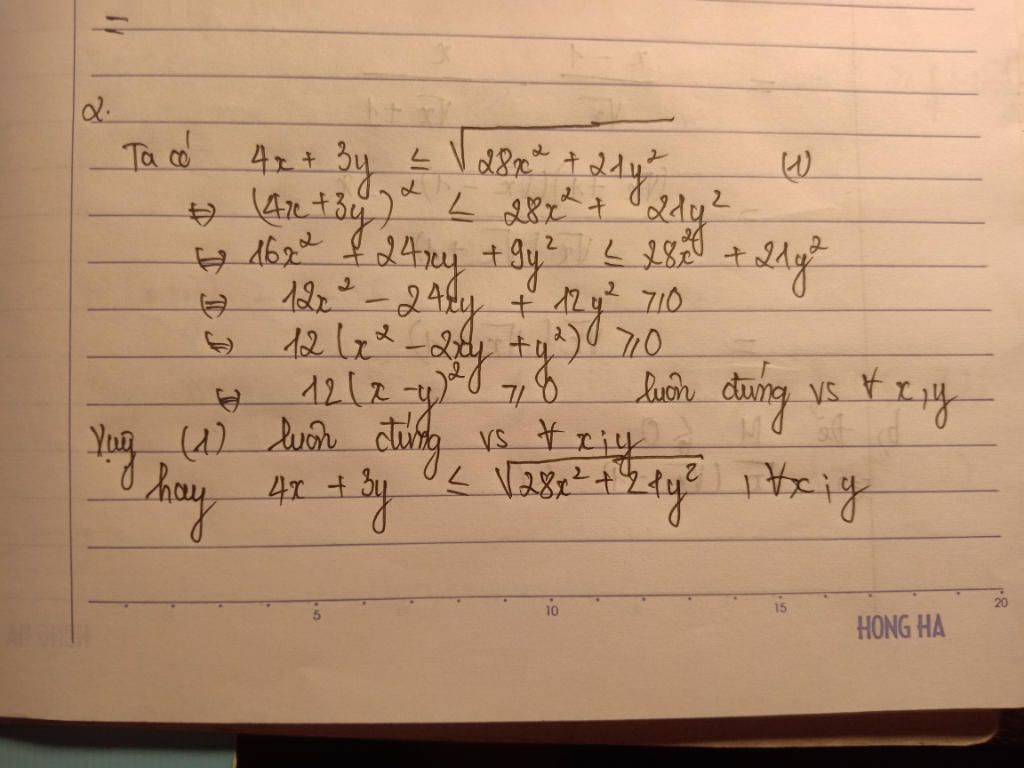 =
2.
Ta có 4x + 3y ≤ √(28x² + 21y²) (1)
⇔ (4x+3y)² ≤ 28x² + 21y²
⇔ 16x² + 24xy + 9y² ≤ 28x² + 21y²
⇔ 12x² − 24xy + 12y² ≥ 0
⇔ 12(x² − 2xy + y²) ≥ 0
⇔ 12(x − y)² ≥ 0 luôn đúng vs ∀ x;y
Vậy (1) luôn đúng vs ∀ x;y
hay 4x + 3y ≤ √(28x² + 21y²) , ∀x;y
5 10 15 20
HONG HA